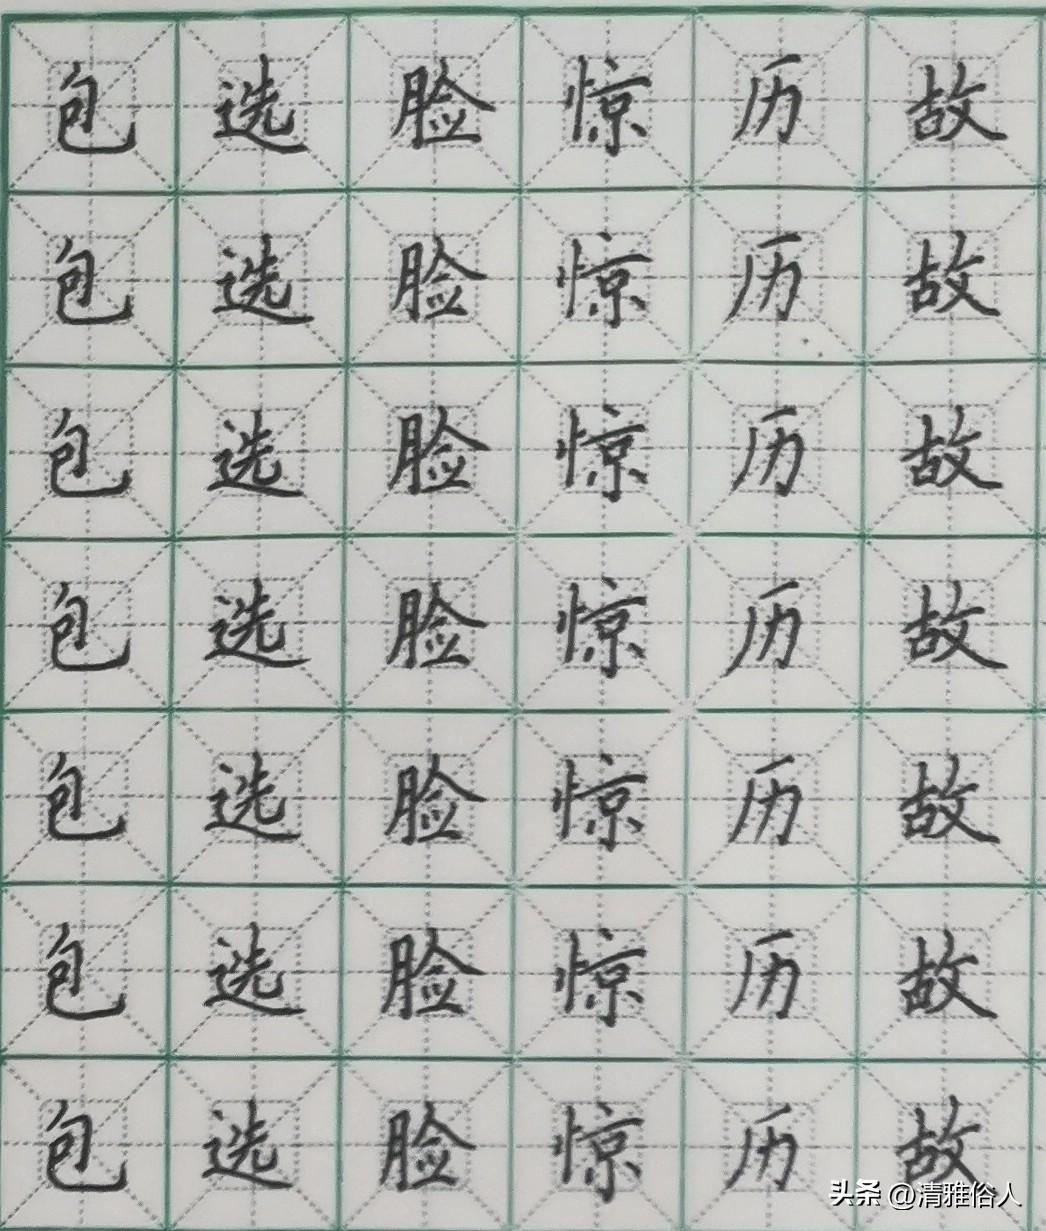 包选脸惊历故
包选脸惊历故
包选脸惊历故
包选脸惊历故
包选脸惊历故
包选脸惊历故
包选脸惊历故
头条 @清雅俗人